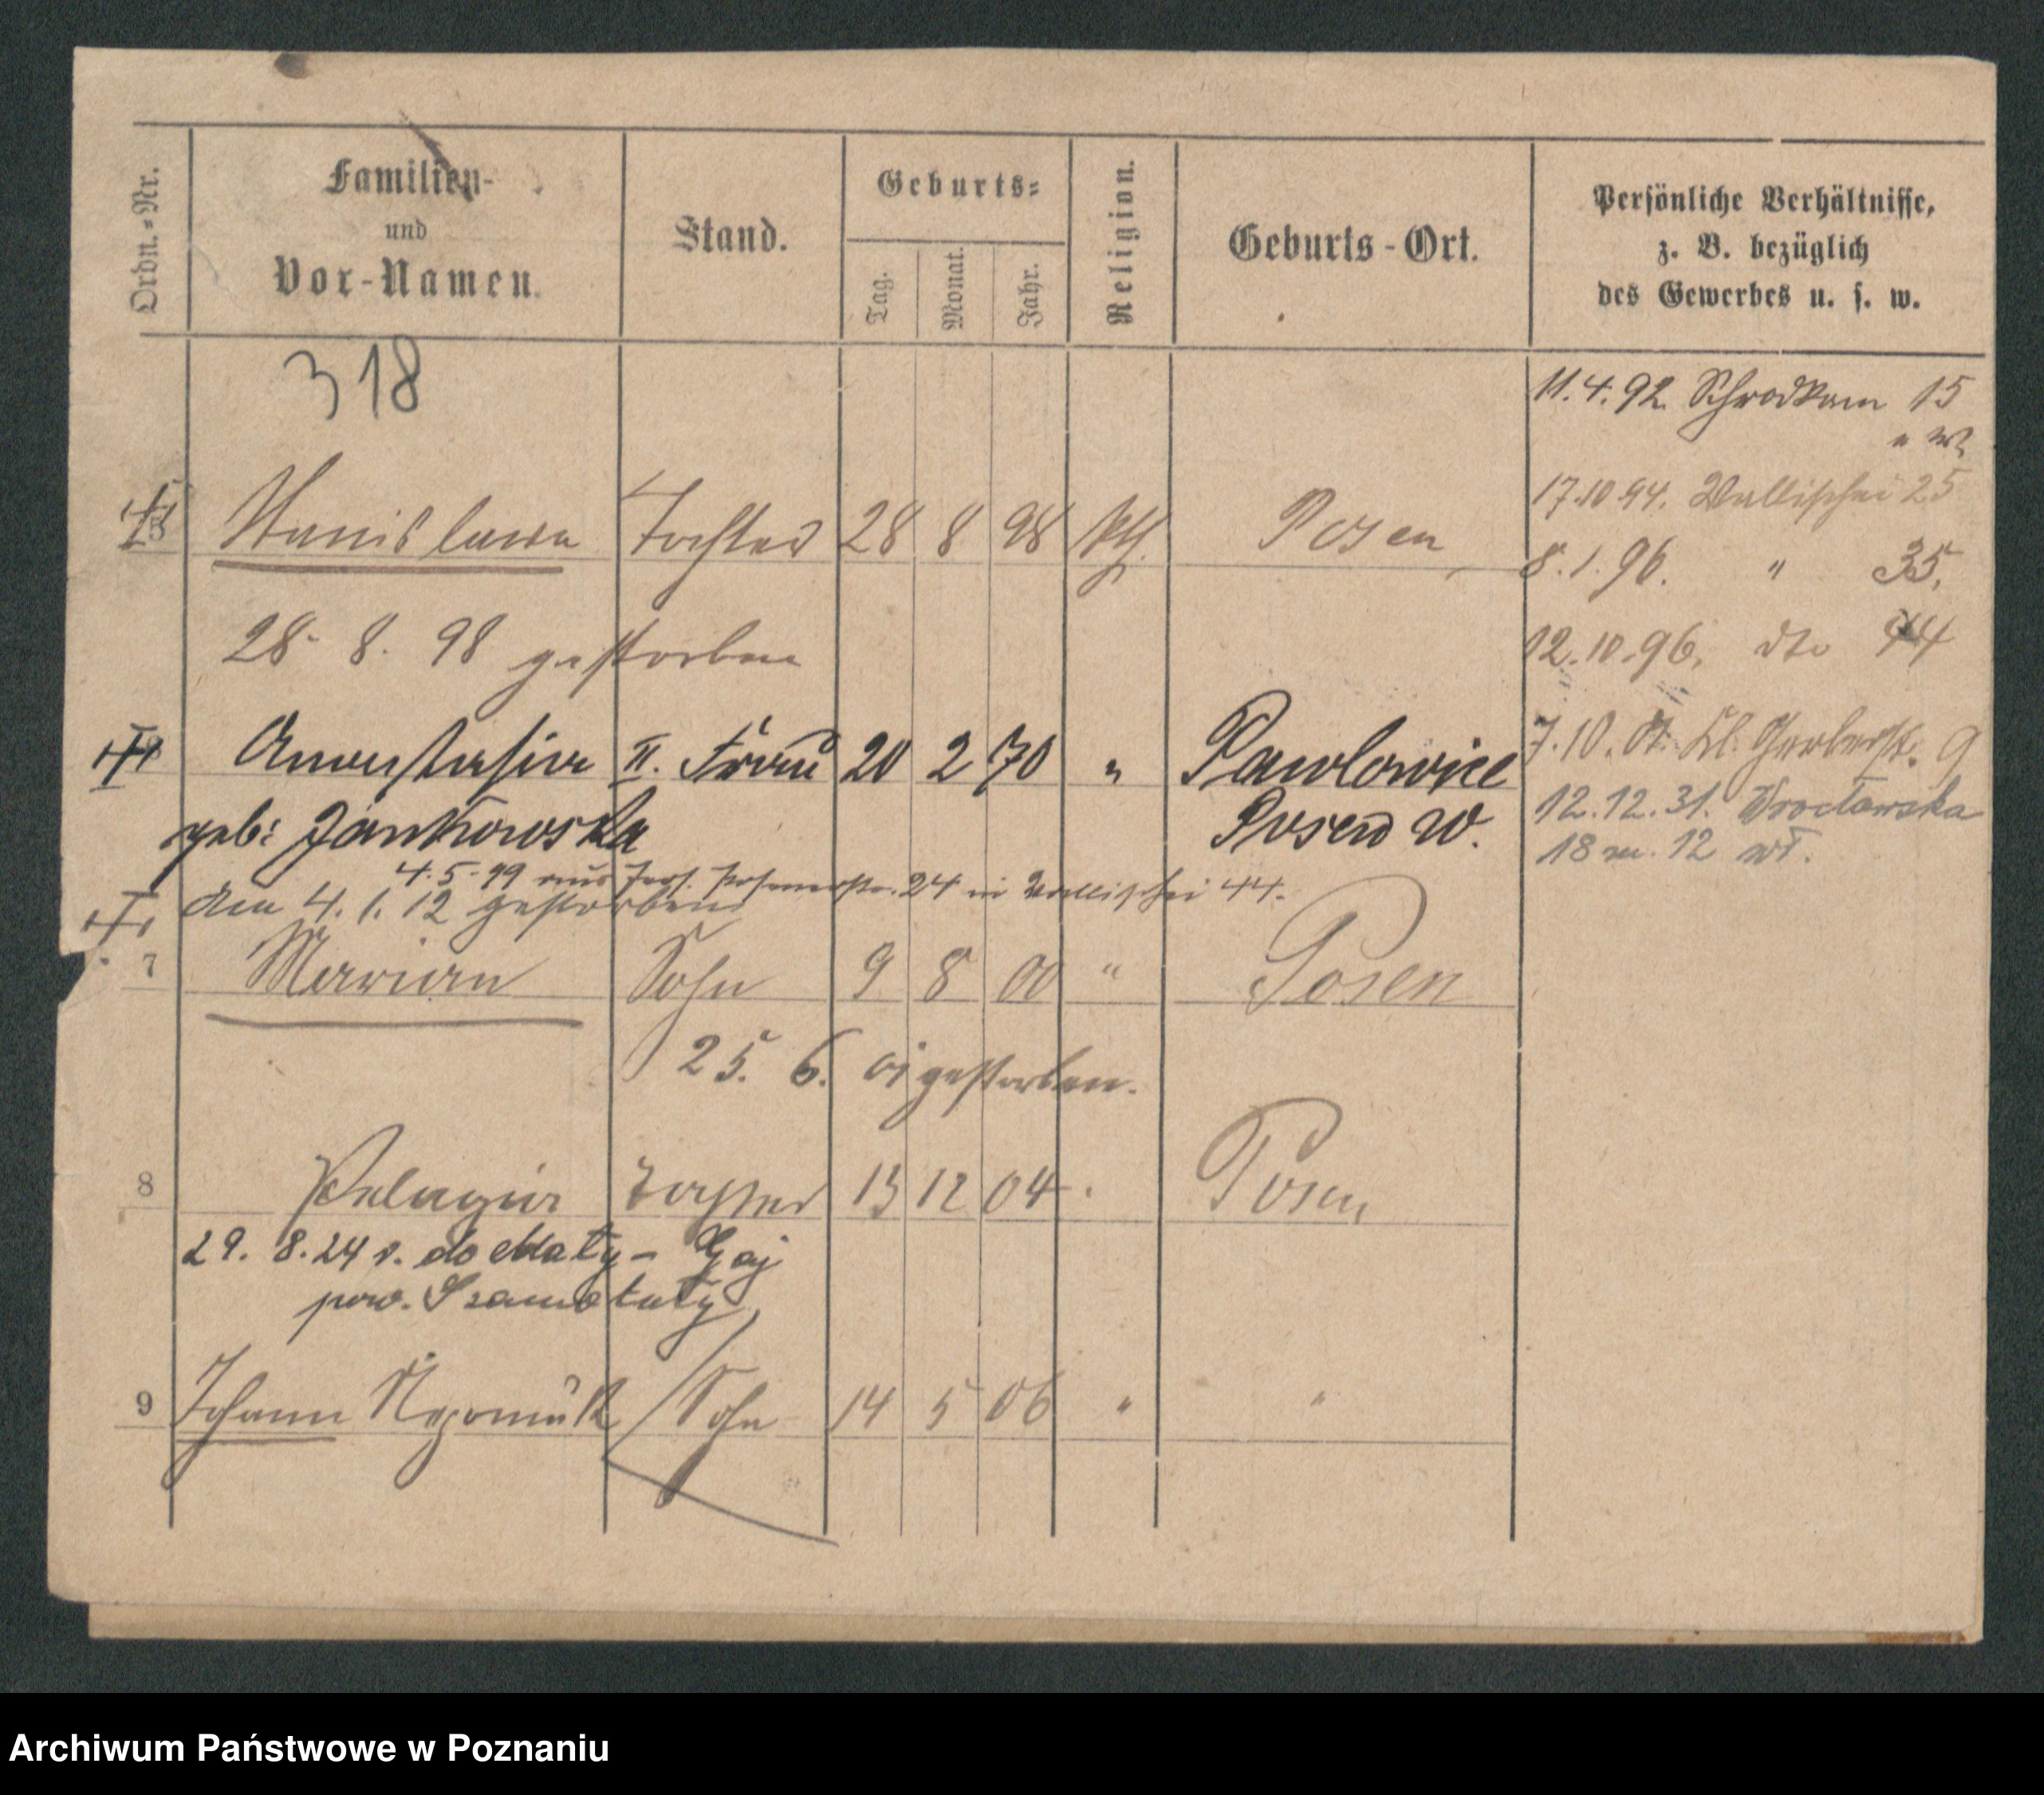 Ordn.-Nr.
Familien-
und
Vor-Namen.
Stand.
Geburts-
Tag.
Monat.
Jahr.
Religion.
Geburts-Ort.
Persönliche Verhältnisse,
z. B. bezüglich
des Gewerbes u. s. w.
318
11. 4. 92. Schrodkam 15
17. 10. 94. Wallischei 25
Stanislawa Tochter 28 8 98 kth. Posen
8. 1. 96. " 35,
28. 8. 98 gestorben
12. 10. 96. dto 44
Anastasia II. Frau 20 2 70 " Pawlowice
7. 10. 01. Kl. Gerberstr. 9
geb: Jankowska Posen W.
12. 12. 31. Wrocławska
18 m. 12 wł.
4. 5. 19 aus Posenerstr. 24 in Wallischei 44.
den 4. 1. 12 gestorben
7 Marian Sohn 9 8 00 " Posen
25. 6. 01 gestorben.
8 Pelagia Tochter 13 12 04 Posen
29. 8. 24 r. do Maty - Gaj
pow. Szamotuły
9 Johann Nepomuk Sohn 14 5 06 " "
Archiwum Państwowe w Poznaniu